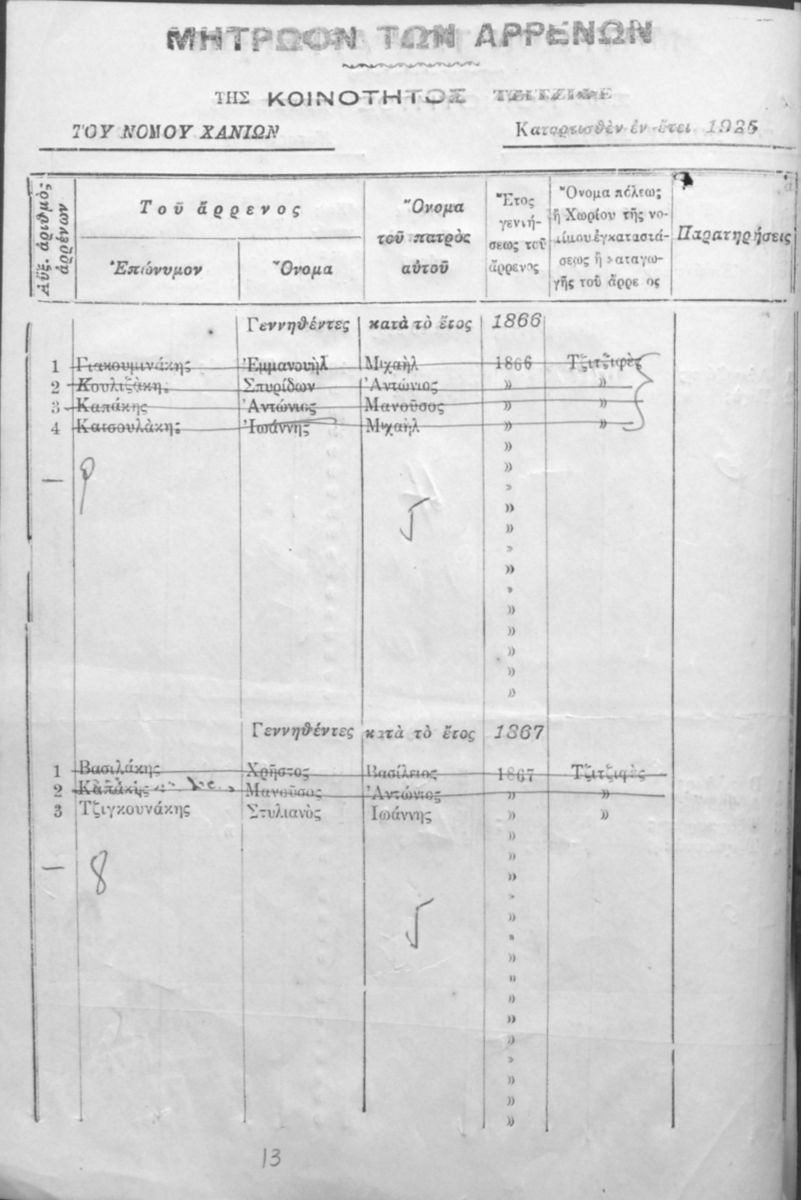 ΜΗΤΡΩΟΝ ΤΩΝ ΑΡΡΕΝΩΝ
ΤΗΣ ΚΟΙΝΟΤΗΤΟΣ ΤΖΙΤΖΙΦΕ
ΤΟΥ ΝΟΜΟΥ ΧΑΝΙΩΝ Καταρτισθὲν ἐν ἔτει 1925
Αὔξ. ἀριθμὸς ἀρρένων
Τοῦ ἄρρενος
Ἐπώνυμον Ὄνομα
Ὄνομα
τοῦ πατρὸς
αὐτοῦ
Ἔτος
γεννή-
σεως τοῦ
ἄρρενος
Ὄνομα πόλεως
ἢ Χωρίου τῆς νο-
μίμου ἐγκαταστά-
σεως ἢ καταγω-
γῆς τοῦ ἄρρε ος
Παρατηρήσεις
Γεννηθέντες κατὰ τὸ ἔτος 1866
1 Γιακουμινάκης Ἐμμανουὴλ Μιχαὴλ 1866 Τζιτζιφὲς
2 Κουλιζάκης Σπυρίδων Ἀντώνιος » »
3 Καπάκης Ἀντώνιος Μανοῦσος » »
4 Κατσουλάκης Ἰωάννης Μιχαὴλ » »
»
»
»
»
»
»
»
»
»
»
»
»
»
Γεννηθέντες κατὰ τὸ ἔτος 1867
1 Βασιλάκης Χρῆστος Βασίλειος 1867 Τζιτζιφὲς
2 Καπάκης Μανοῦσος Ἀντώνιος » »
3 Τζιγκουνάκης Στυλιανὸς Ἰωάννης » »
»
»
8 »
»
»
»
»
»
»
»
»
»
»
»
»
13